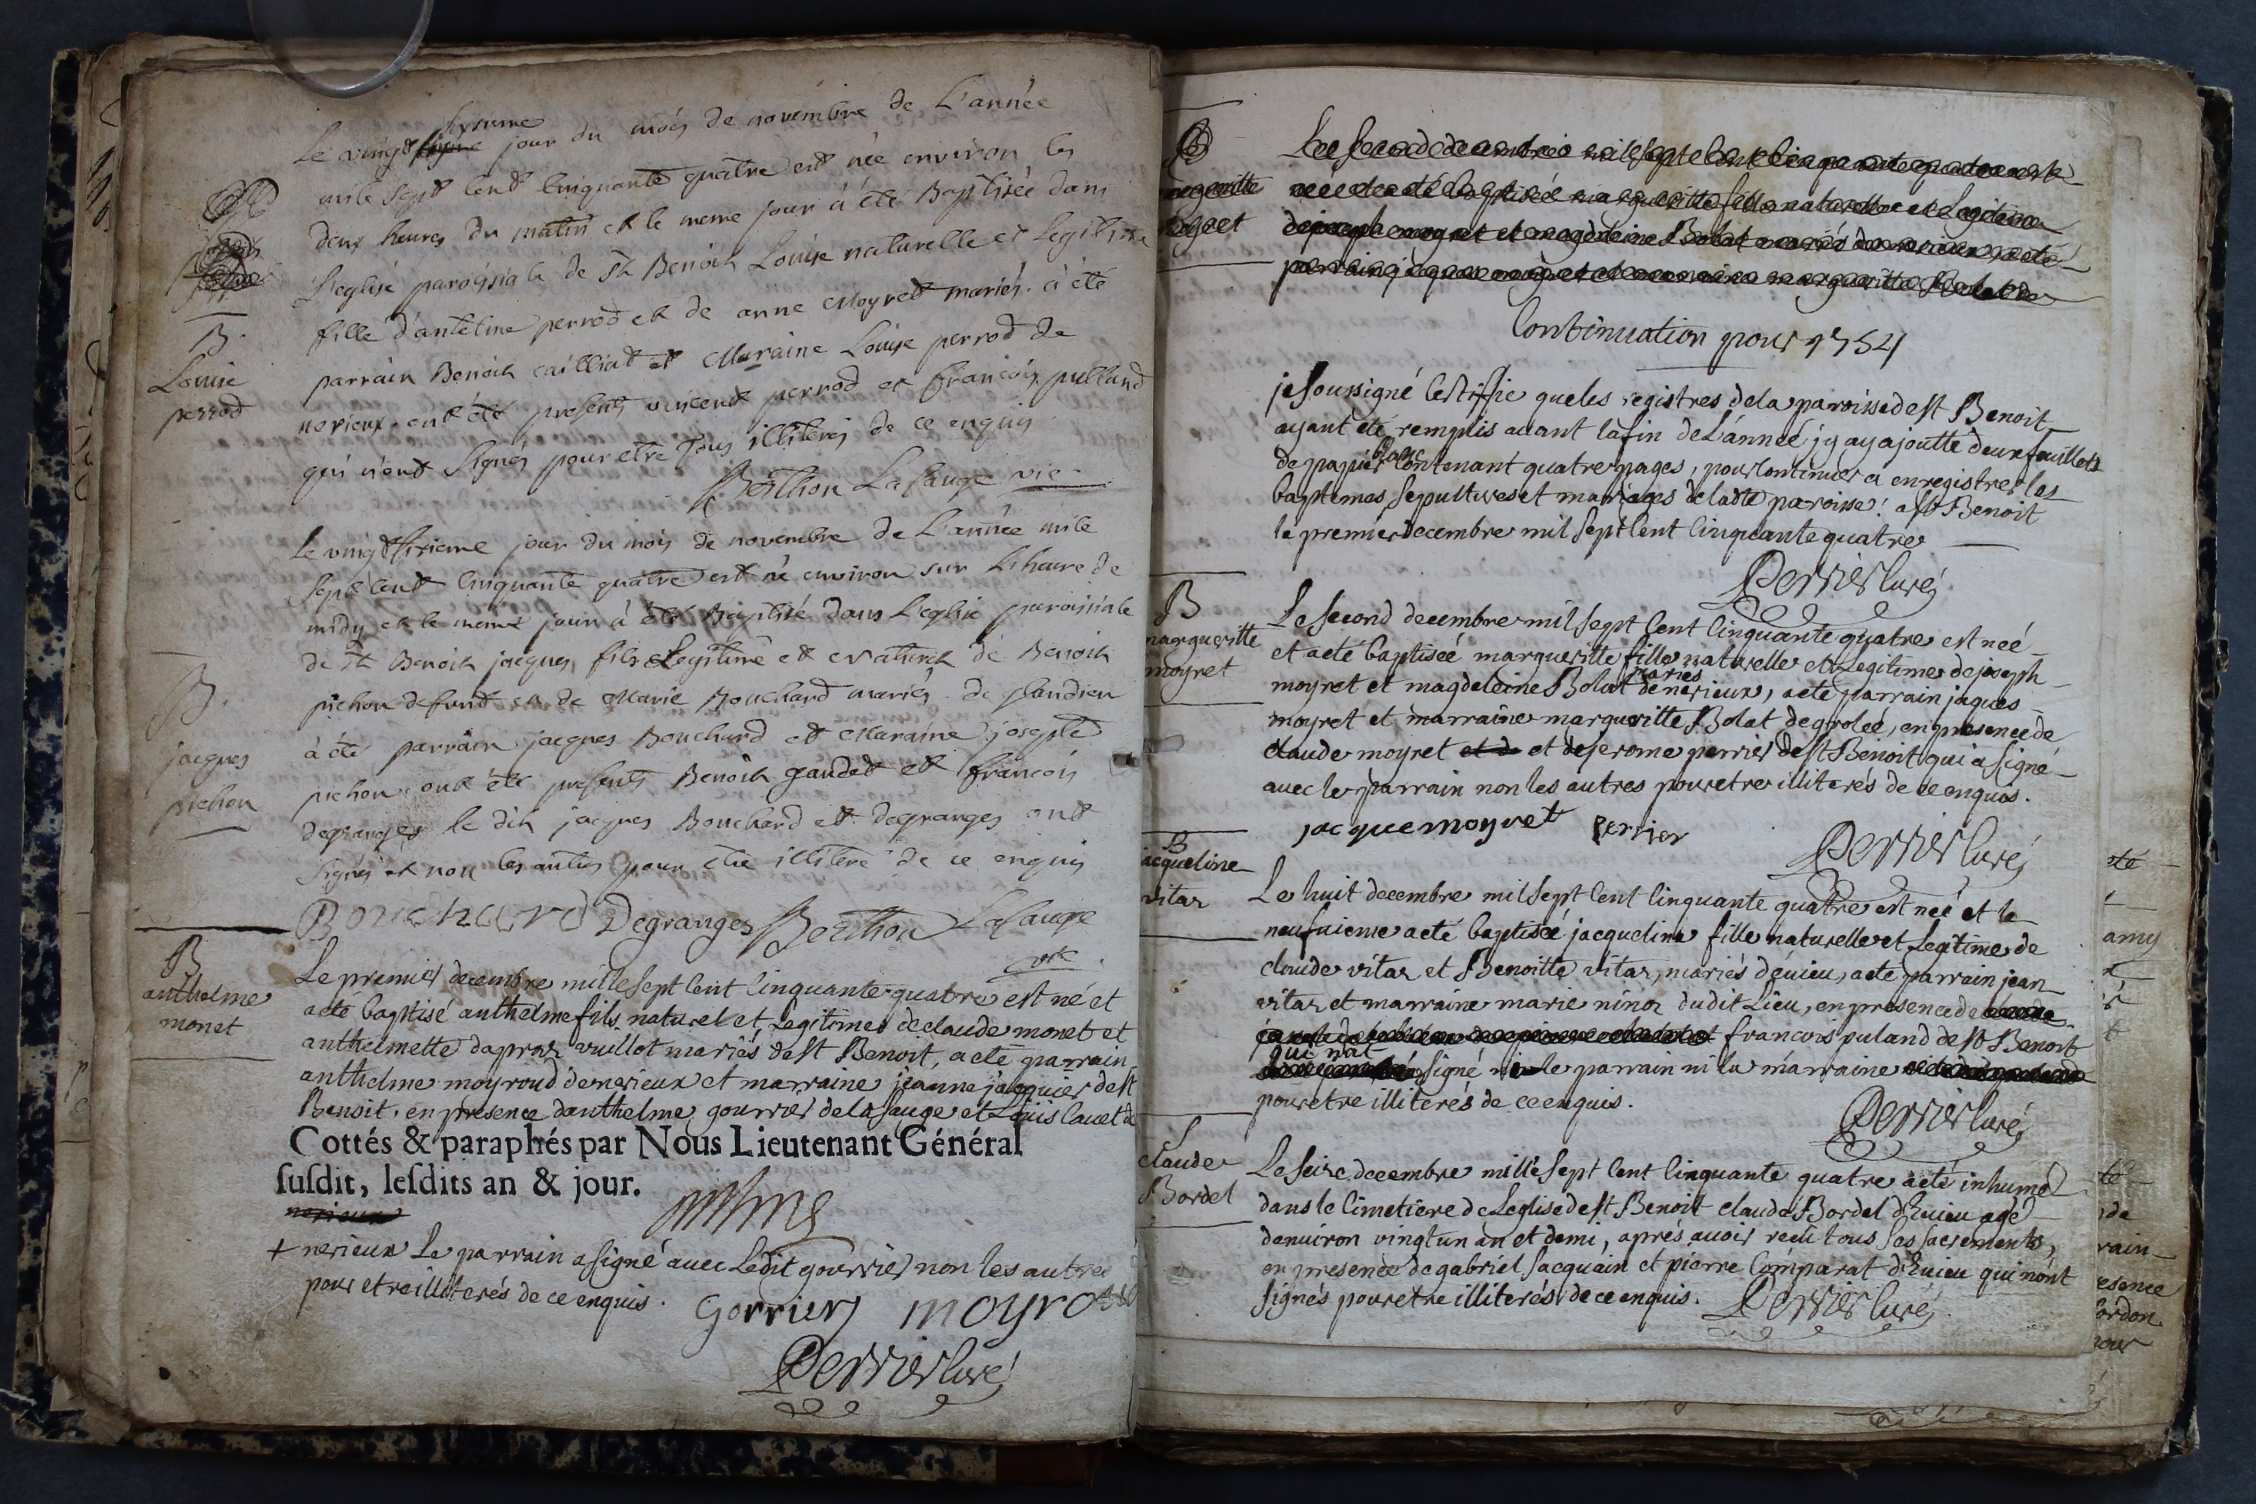 Le vingt sixieme jour du mois de novembre de L'année
mile sept cent cinquante quatre est née environ les
deux heures du matin et le meme jour à été Baptisée dans
L'eglise paroissiale de st Benoit Louise naturelle et Legitime
fille d'antelme perrod et de anne Moyret mariés. à été
B.
Louise
perrod
parrain Benoit cailliat et Maraine Louise perrod de
nerieux. ont été presents vincent perrod et francois pulland
qui n'ont signés pour etre tous illiterés de ce enquis
Berthon Lasauge vic
B.
jacques
pichon
Le vingt sixieme jour du mois de novembre de L'année mile
sept cent cinquante quatre est né environ sur L'heure de
midy et le meme jour à été Baptisé dans L'eglise paroissiale
de st Benoit jacques, fils Legitime et naturel de Benoit
pichon defunt et de Marie Bouchard mariés de glandieu
à été parrain jacques Bouchard et Maraine josepte
pichon. ont été presents Benoit gaudet et francois
degranges le dit jacques Bouchard et degranges ont
signés et non les autres pour etre illiteré de ce enquis
Bouchard Degranges Berthon Lasauge
vic
B
anthelme
monet
Le premier decembre mille sept cent cinquante quatre est né et
a été baptisé anthelme fils naturel et Legitime de claude monet et
anthelmette dapraz vuillot mariés de st Benoit, a été parrain
anthelme moyroud de nerieux et marraine jeanne jacquier de st
Benoit, en presence d'anthelme gourrier de la sauge et Louis cavet de
Cottés & paraphés par Nous Lieutenant Général
susdit, lesdits an & jour.
nerieux
+ nerieux Le parrain a signé avec Ledit gourrier non les autres
pour etre illiterés de ce enquis. Gorrier moyro
Perrier curé
margueritte
moyret
Le second decembre mil sept cent cinquante quatre est
née et a été baptisée margueritte fille naturelle et Legitime
de joseph moyret et magdeleine Bolat mariés de nerieux, a été
parrain jaques moyret et marraine margueritte Bolat de
Continuation pour 1754
je soussigné certiffie que les registres de la paroisse de st Benoit
ayant été remplis avant la fin de L'année j'y ay ajoutté deux feuillets
de papier blanc contenant quatre pages, pour continuer a enregistrer les
baptemes sepultures et mariages de ladte paroisse. a st Benoit
le premier decembre mil sept cent cinquante quatre
Perrier curé
B
margueritte
moyret
Le second decembre mil sept cent cinquante quatre est née
et a été baptisée margueritte fille naturelle et Legitime de joseph
moyret et magdeleine Bolat mariés de nerieux, a été parrain jaques
moyret et marraine margueritte Bolat de grolée, en presence de
claude moyret et de et de jerome perrier de st Benoit qui a signé
avec le parrain non les autres pour etre illiterés de ce enquis.
jacque moyret Perrier
Perrier curé
B
jacqueline
vitaz
Le huit decembre mil sept cent cinquante quatre est née et le
neufvieme a été baptisée jacqueline fille naturelle et Legitime de
claude vitaz et Benoitte vitaz, mariés d'evieu, a été parrain jean
vitaz et marraine marie ninoz dudit Lieu, en presence de
francois puland de st Benoit
qui n'at signé ni le parrain ni la marraine
pour etre illiterés de ce enquis.
Perrier curé
claude
Bordel
Le seize decembre mille sept cent cinquante quatre a été inhumé
dans le cimetiere de L'eglise de st Benoit claude Bordel d'Evieu agé
d'environ vingt un an et demi, aprés avoir recu tous ses sacrements,
en presence de gabriel sacquain et pierre Comparat d'Evieu qui n'ont
signés pour etre illiterés de ce enquis. Perrier curé
amy
rain
esence
ordon